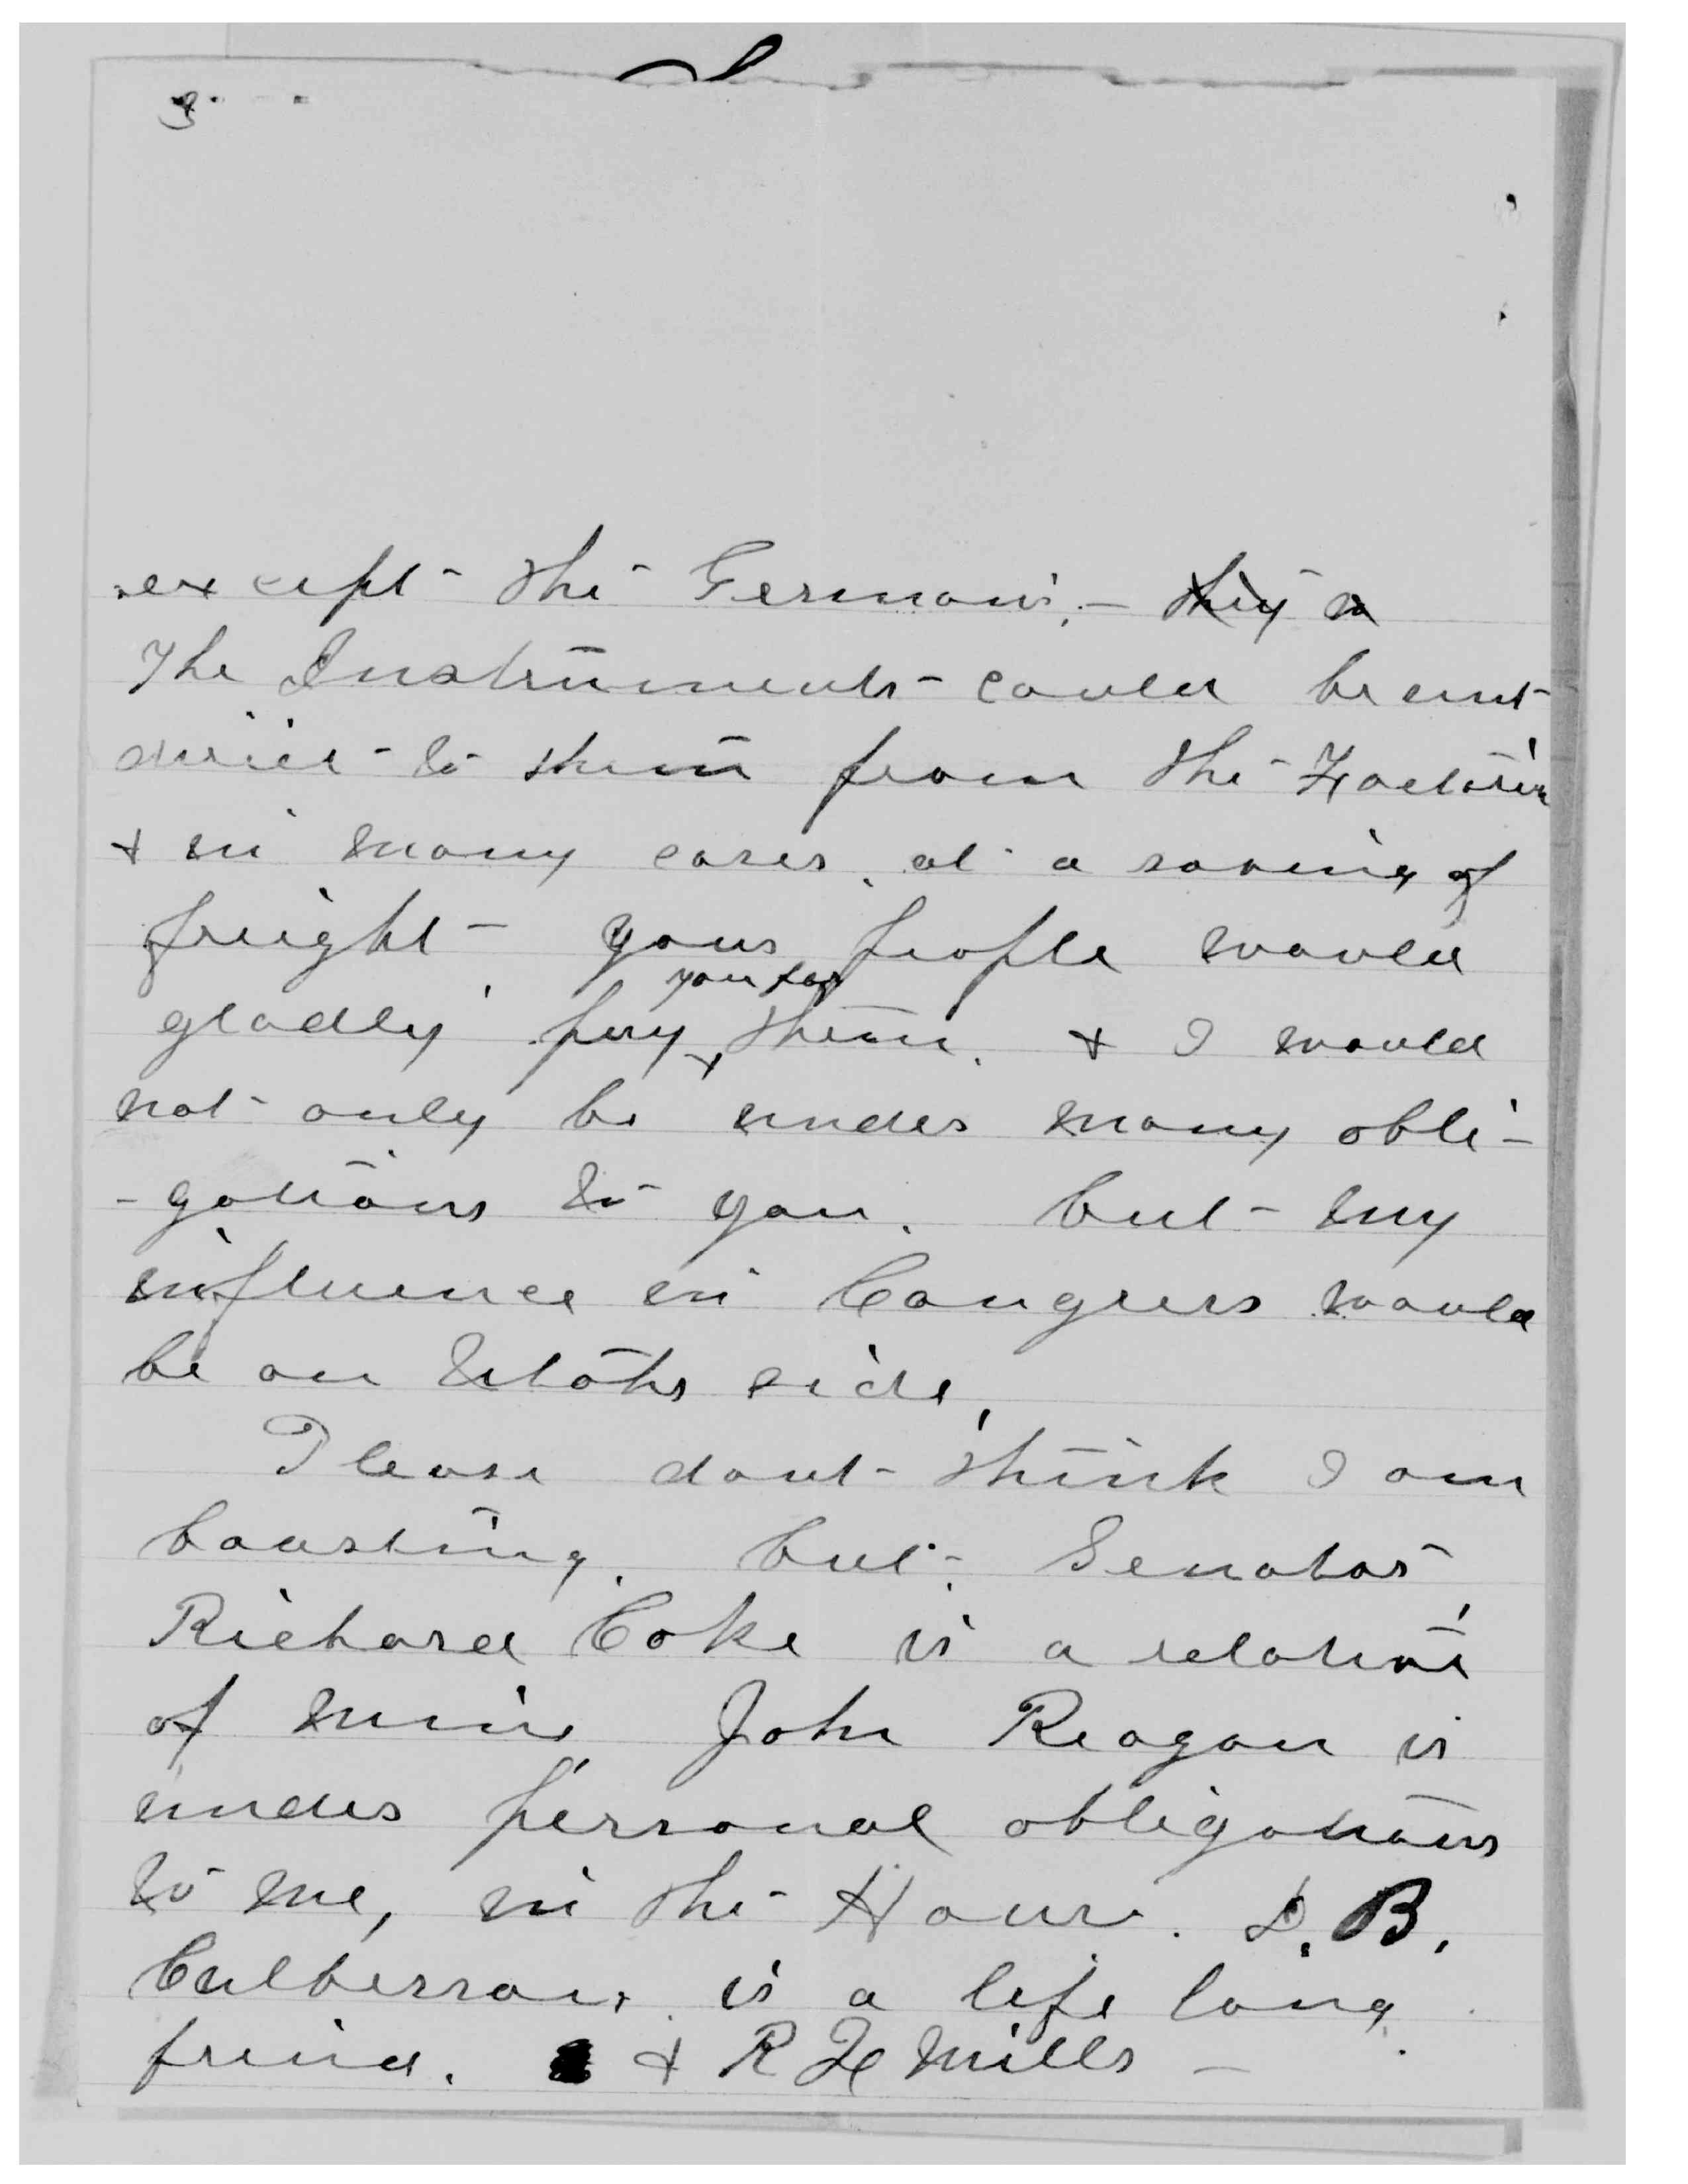 3
except the Germans, - they a
The Instruments could be sent
direct to them from the Factories
& in many cases, at a saving of
freight - your people would
you for
gladly pay them. & I would
not only be under many obli-
-gations to you. but my
influence in Congress would
be on Utahs side,
Please dont think I am
boasting. but. Senator
Richard Coke is a relative
of mine, John Reagan is
under personal obligations
to me, in the House. D. B.
Culberson, is a life long
friend. & R Q Mills -